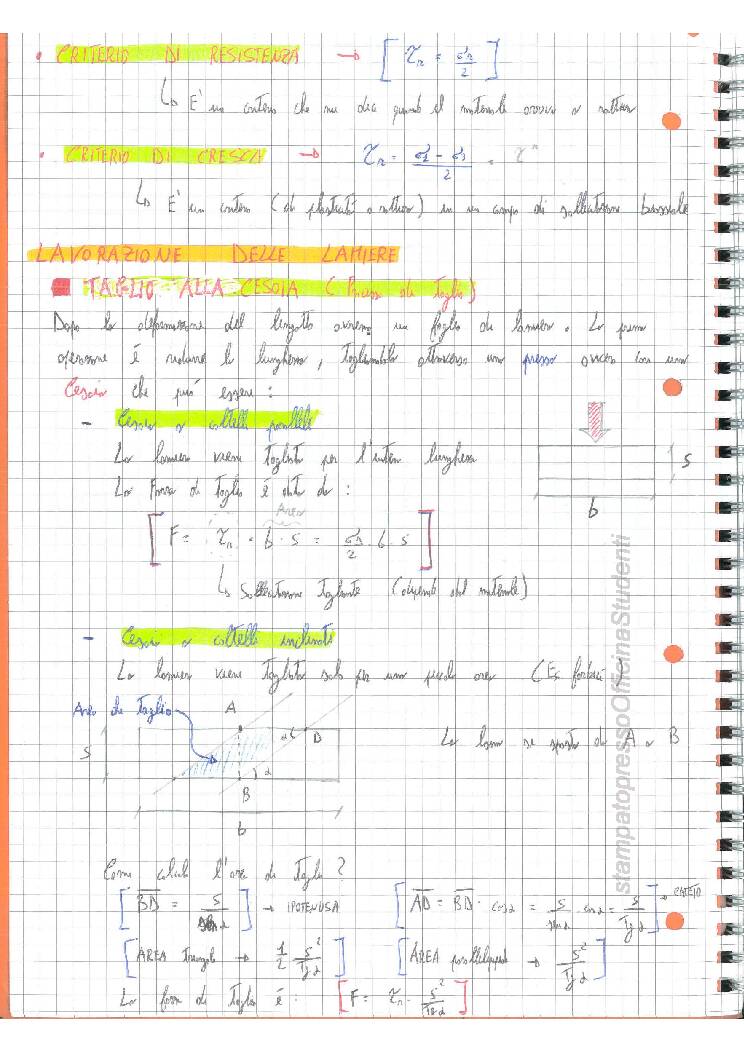 • CRITERIO DI RESISTENZA → [ τr = σr/2 ]
↳ È un criterio che mi dice quando il materiale arriva a rottura
• CRITERIO DI TRESCA → τr = (σ1 - σ3)/2 = τ*
↳ È un criterio (di plasticità o rottura) in un campo di sollecitazione biassiale
LAVORAZIONE DELLE LAMIERE
TAGLIO ALLA CESOIA (Pressa di Taglio)
Dopo la deformazione del lingotto avremo un foglio di lamiera. La prima
operazione è ridurre la lunghezza, tagliandola attraverso una pressa ovvero con una
Cesoia che può essere:
- Cesoia a coltelli paralleli
La lamiera viene tagliata per l'intera lunghezza
La Forza di Taglio è data da:
s
b
Area
[ F = τr · b · s = σr/2 · b · s ]
↳ Sollecitazione Tagliante (dipende dal materiale)
- Cesoia a coltelli inclinati
La lamiera viene Tagliata solo per una piccola area (Es forbici)
Area di Taglio
A
s
α
D
B
α
b
La lama si sposta da A a B
Come calcolo l'area di Taglio?
[ BD = s/sinα ] → IPOTENUSA [ AD = BD · cosα = s/sinα · cosα = s/Tgα ] → CATETO
[ AREA triangolo → 1/2 s²/Tgα ] [ AREA → s²/Tgα ]
La forza di Taglio è: [ F = τr · s²/Tgα ]
stampatopressoOfficinaStudenti